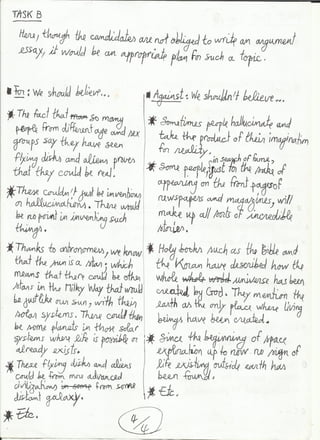 TASK B
Here, though the candidates are not obliged to write an argument
essay, it would be an appropriate plan for such a topic.
For: We should believe...
* The fact that so many
people from different age and sex
groups say they have seen
flying disks and aliens proves
that they could be real.
* These couldn't just be inventions
or hallucinations. There would
be no point in inventing such
things.
* Thanks to astronomers, we know
that the sun is a star; which
means that there could be other
stars in the Milky Way that would
be just like our sun, with their
solar systems. There could then
be some planets in those solar
systems where life is possible or
already exists.
* These flying disks and aliens
could be from more advanced
civilizations in some from some
distant galaxy.
* Etc.
Against: We shouldn't believe...
* Sometimes people hallucinate and
take the product of their imagination
for reality.
in search of fame,
* Some people, just for the sake of
appearing on the front pages of
newspapers and magazines, will
make up all sorts of incredible
stories.
* Holy books such as the Bible and
the Koran have described how the
whole universe has been
created by God. They mention the
earth as the only place where living
beings have been created.
* Since the beginning of space
exploration up to now no sign of
life existing outside earth has
been found.
* Etc.
4/4